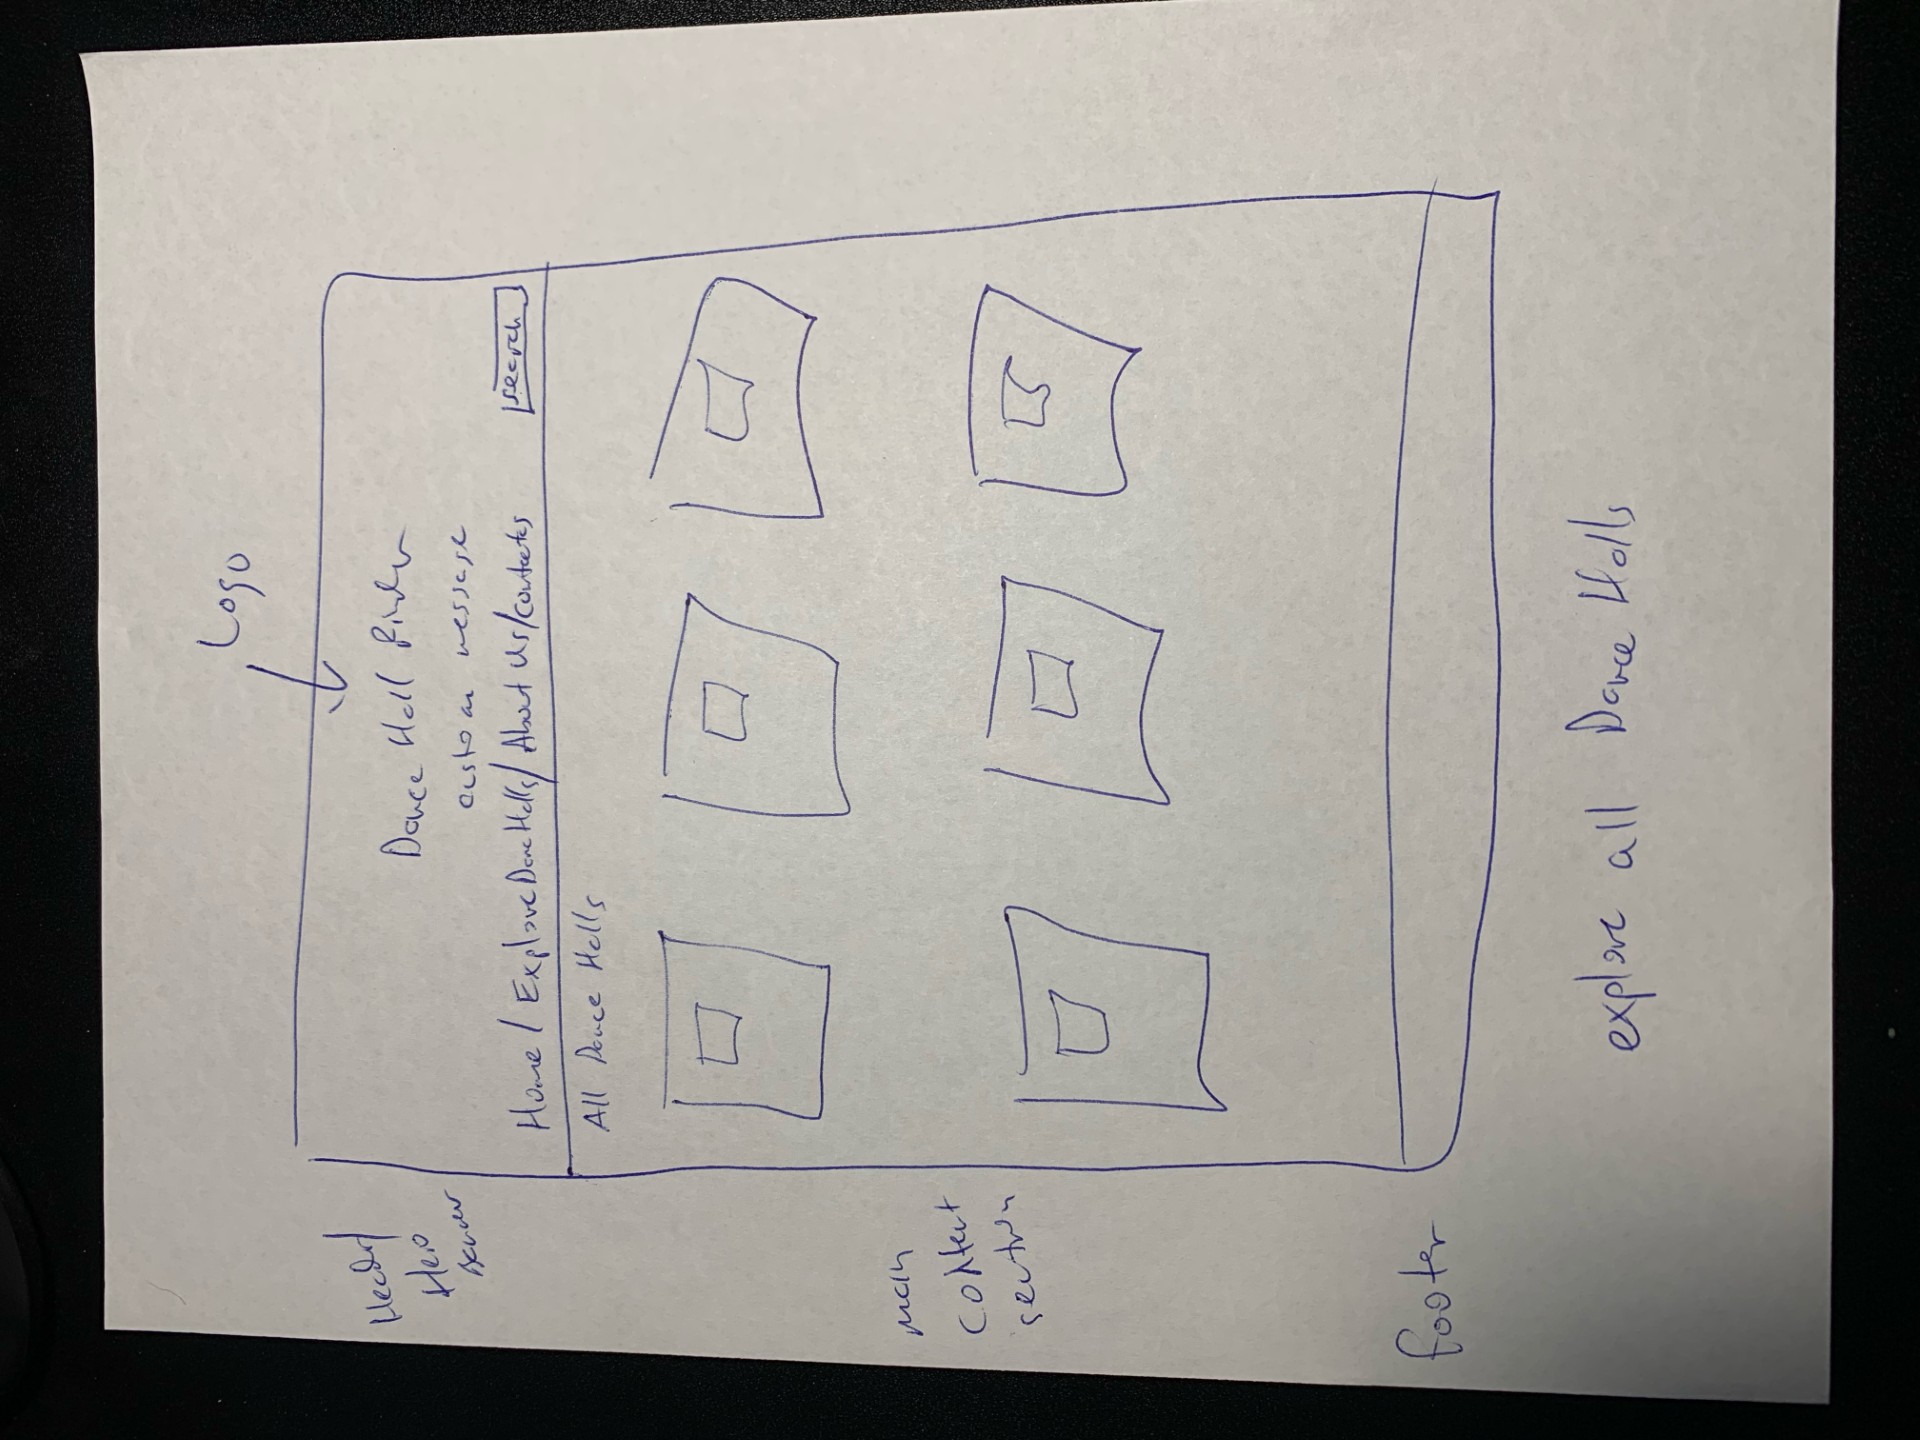 Logo
Header/
Hero
Banner
Dance Hall Finder
custom message
Home / Explore Dance Halls / About Us / contactes
search
All Dance Halls
main
content
section
Footer
explore all Dance Halls